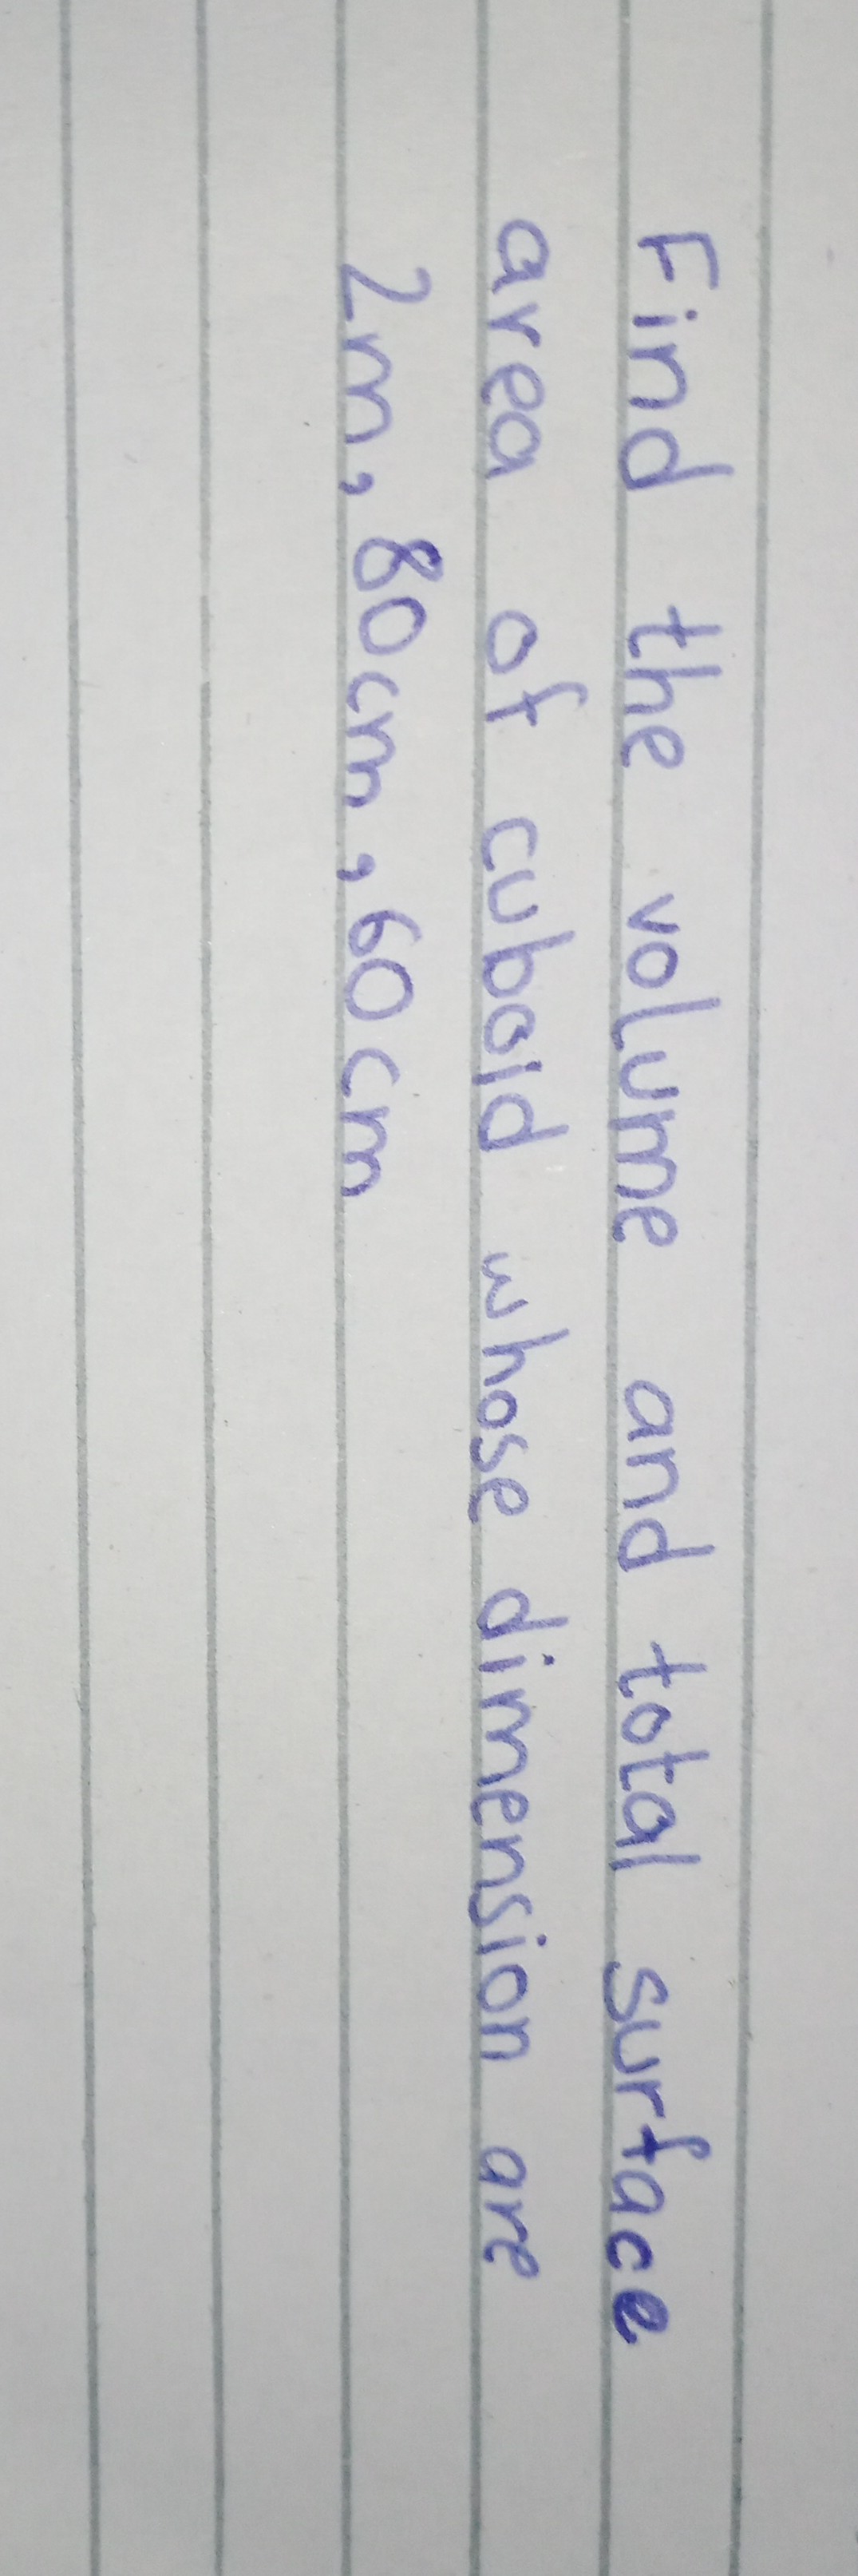 Find the volume and total surface
area of cuboid whose dimension are
2m, 80cm, 60cm